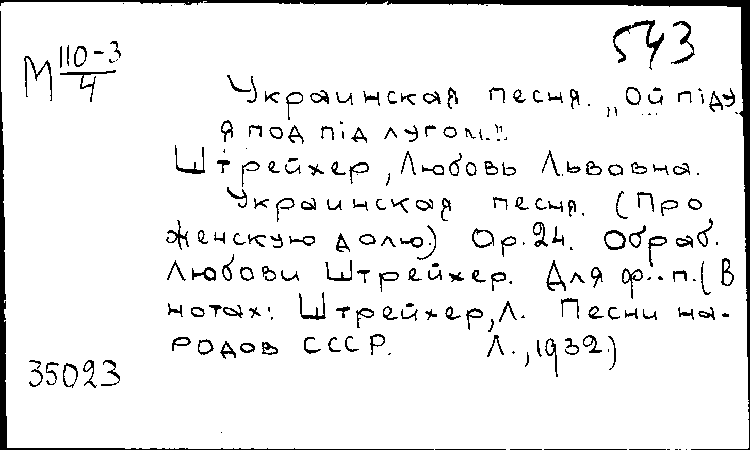 543
М 110-3/4
Украинская песня. „Ой піду
я под під лугом."
Штрейхер, Любовь Львовна.
Украинская песня. (Про
женскую долю.) Op. 24. Обраб.
Любови Штрейхер. Для ф.-п. (В
нотах: Штрейхер, Л. Песни на-
родов СССР. Л., 1932.)
35023